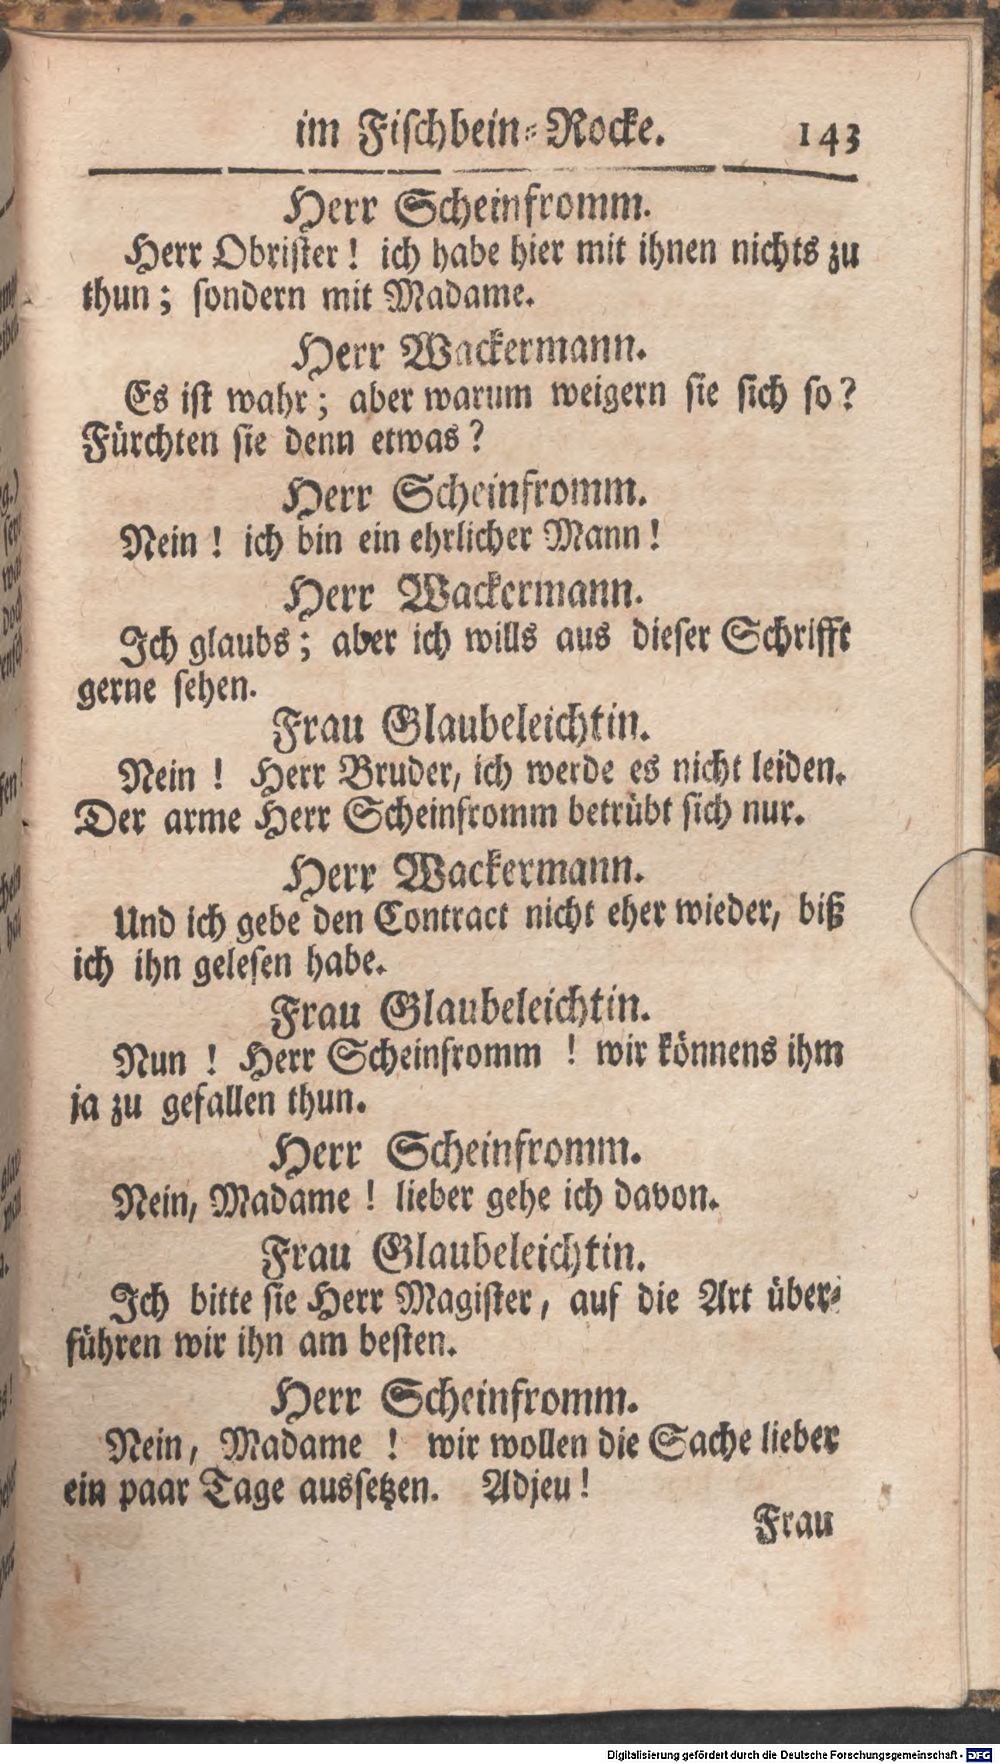 im Fischbein-Rocke. 143
Herr Scheinfromm.
Herr Obrister! ich habe hier mit ihnen nichts zu
thun; sondern mit Madame.
Herr Wackermann.
Es ist wahr; aber warum weigern sie sich so?
Fürchten sie denn etwas?
Herr Scheinfromm.
Nein! ich bin ein ehrlicher Mann!
Herr Wackermann.
Ich glaubs; aber ich wills aus dieser Schrifft
gerne sehen.
Frau Glaubeleichtin.
Nein! Herr Bruder, ich werde es nicht leiden.
Der arme Herr Scheinfromm betrübt sich nur.
Herr Wackermann.
Und ich gebe den Contract nicht eher wieder, biß
ich ihn gelesen habe.
Frau Glaubeleichtin.
Nun! Herr Scheinfromm! wir könnens ihm
ja zu gefallen thun.
Herr Scheinfromm.
Nein, Madame! lieber gehe ich davon.
Frau Glaubeleichtin.
Ich bitte sie Herr Magister, auf die Art über-
führen wir ihn am besten.
Herr Scheinfromm.
Nein, Madame! wir wollen die Sache lieber
ein paar Tage aussetzen. Adjeu!
Frau
Digitalisierung gefördert durch die Deutsche Forschungsgemeinschaft - DFG